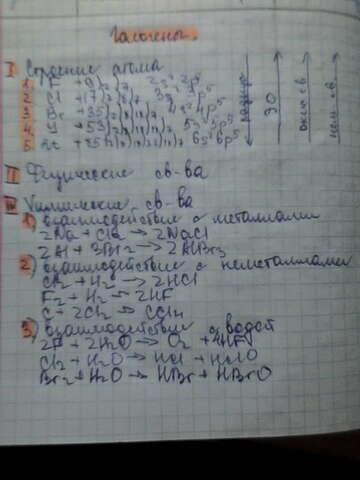 Галогены.
I Строение атома
1. F +9)2)7 2s² 2p⁵
2. Cl +17)2)8)7 3s² 3p⁵
3. Br +35)2)8)18)7 4s² 4p⁵
4. I +53)2)8)18)18)7 5s² 5p⁵
5. At +85)2)8)18)32)18)7 6s² 6p⁵
радиус ЭО окис св нем. св.
II Физические св-ва
III Химические св-ва
1) взаимодействие с металлами
2Na + Cl2 → 2NaCl
2Al + 3Br2 → 2AlBr3
2) взаимодействие с неметаллами
Cl2 + H2 → 2HCl
F2 + H2 → 2HF
C + 2Cl2 → CCl4
3) взаимодействие с водой
2F + 2H2O → O2 + 4HF
Cl2 + H2O → HCl + HClO
Br2 + H2O → HBr + HBrO